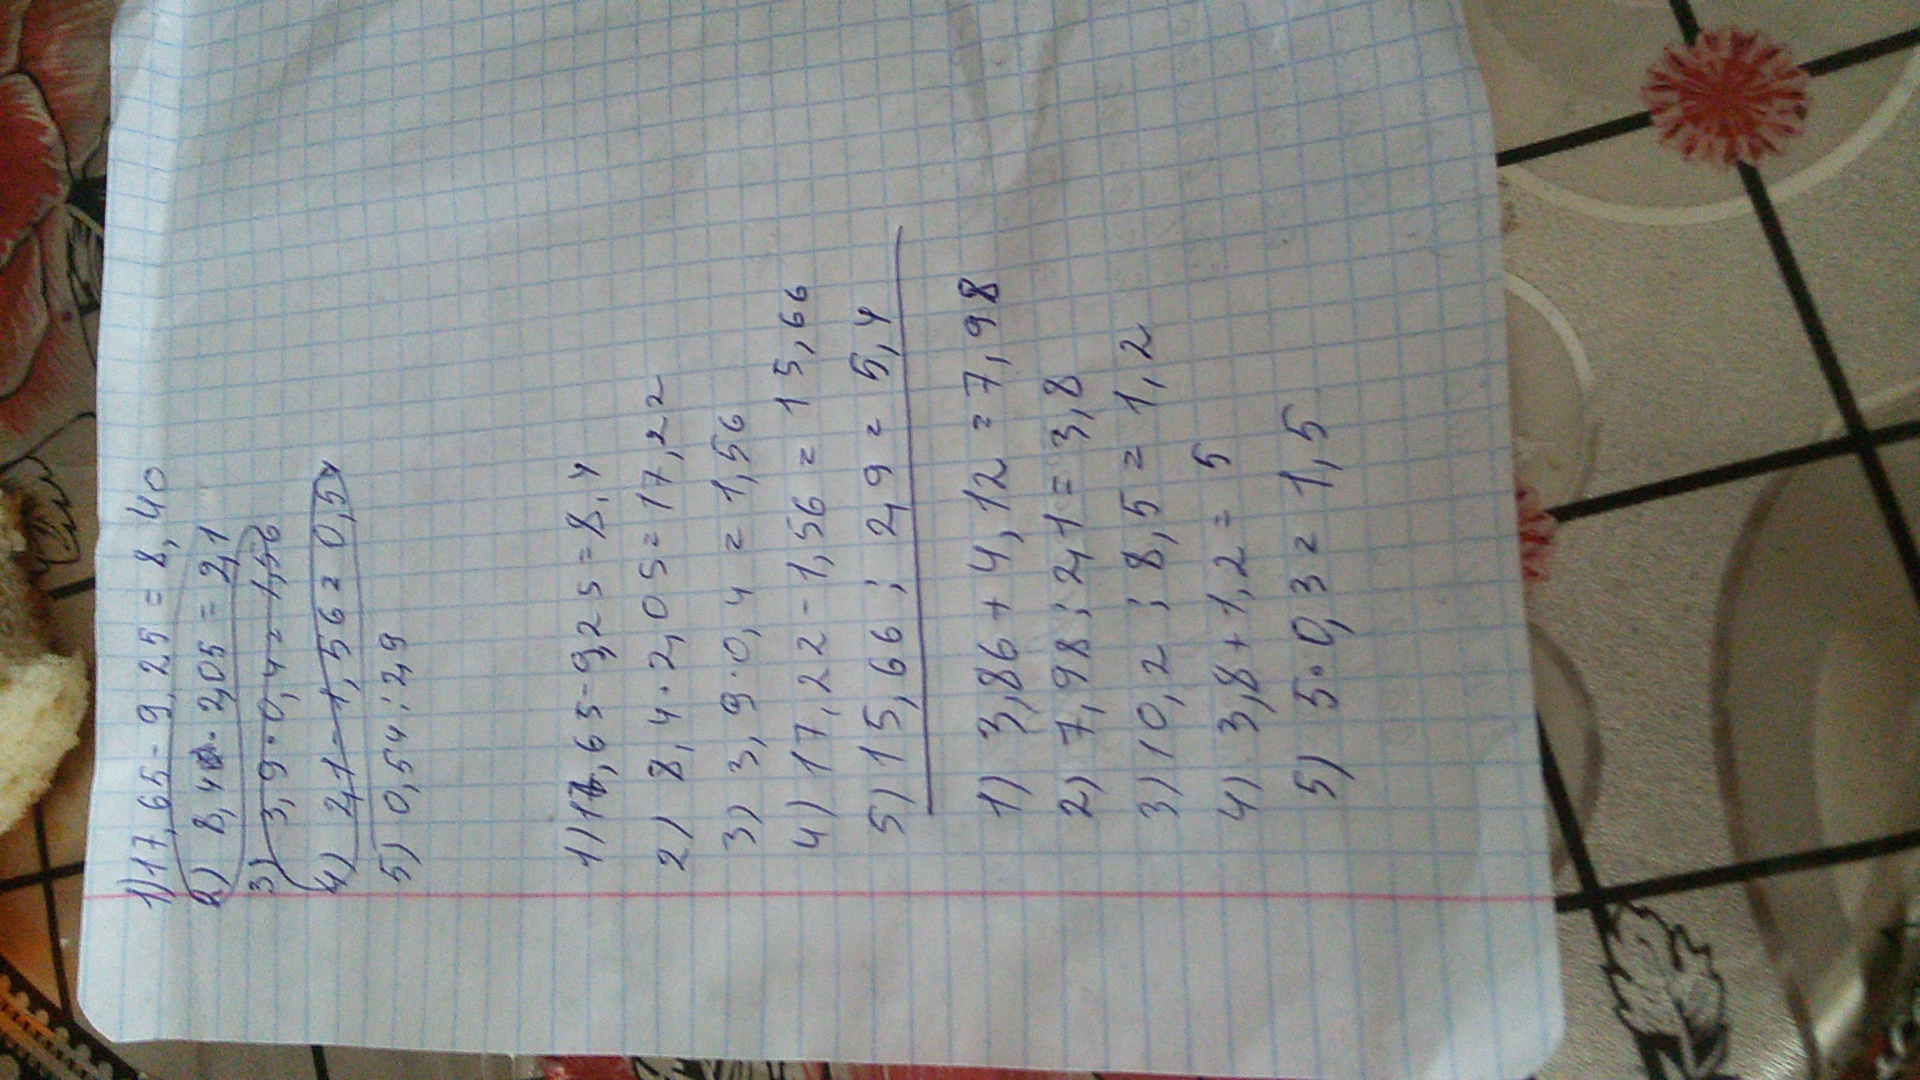 1) 17,65 - 9,25 = 8,40
2) 8,4 · 2,05 = 2,1
3) 3,9 · 0,4 = 1,56
4) 2,1 - 1,56 = 0,54
5) 0,54 : 2,9
1) 17,65 - 9,25 = 8,4
2) 8,4 · 2,05 = 17,22
3) 3,9 · 0,4 = 1,56
4) 17,22 - 1,56 = 15,66
5) 15,66 : 2,9 = 5,4
1) 3,86 + 4,12 = 7,98
2) 7,98 : 2,1 = 3,8
3) 10,2 : 8,5 = 1,2
4) 3,8 + 1,2 = 5
5) 5 · 0,3 = 1,5